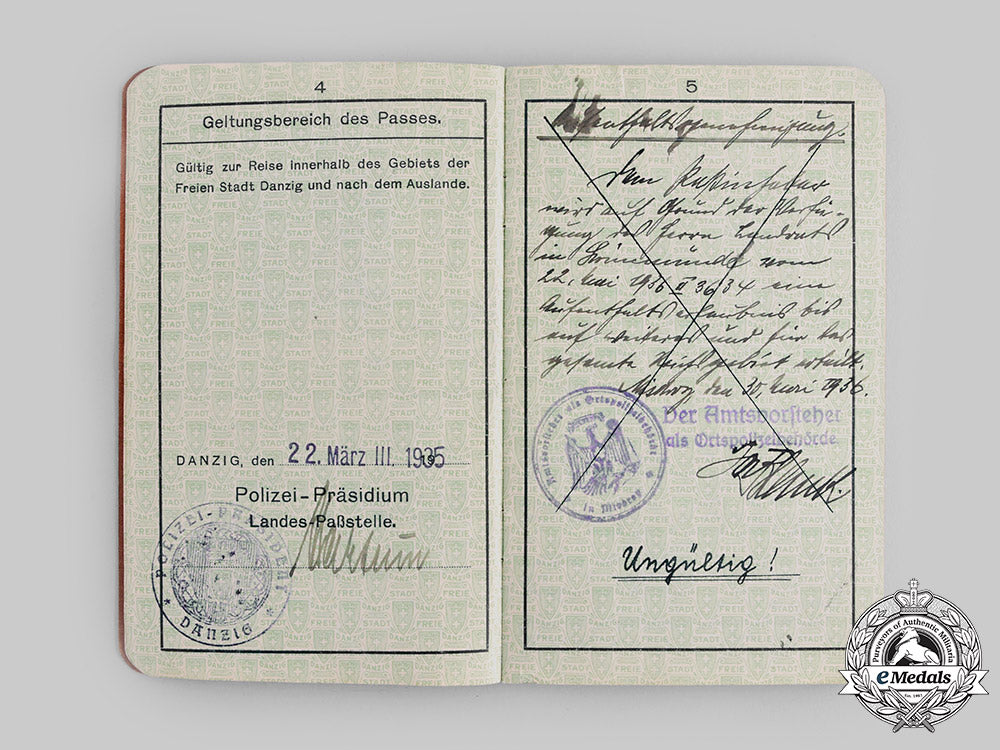 4
Geltungsbereich des Passes.
Gültig zur Reise innerhalb des Gebiets der
Freien Stadt Danzig und nach dem Auslande.
DANZIG, den 22. März III. 1935
Polizei-Präsidium
Landes-Paßstelle.
POLIZEI-PRÄSIDENT
* DANZIG *
5
Aufenthaltsgenehmigung.
Dem Paßinhaber
wird auf Grund der Verfü-
gung des Herrn Landrats
in Swinemünde vom
22. Mai 1936 II 3634 eine
Aufenthaltserlaubnis bis
auf weiteres und für das
gesamte Reichsgebiet erteilt.
den 30. Mai 1936.
Der Amtsvorsteher
als Ortspolizeibehörde
als Ortspolizeibehörde
in Misdroy
Ungültig!
Purveyors of Authentic Militaria
eMedals